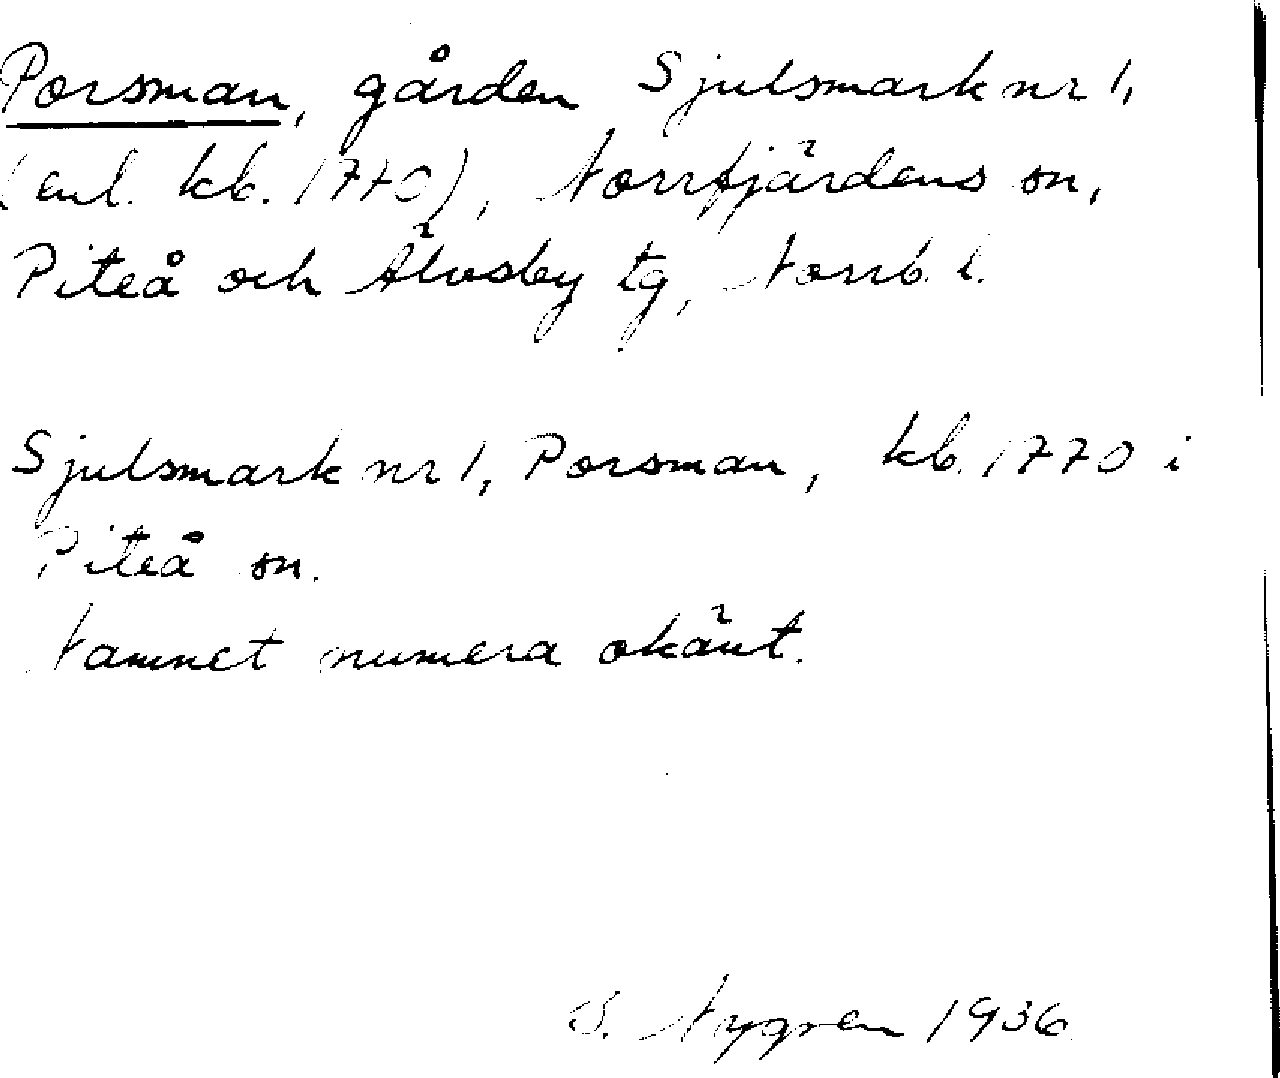 Porsman, gården Sjulsmark nr 1,
(enl. kb. 1770), Norrfjärdens sn,
Piteå och Älvsby tg, Norrb. l.
Sjulsmark nr 1, Porsman, kb. 1770 i
Piteå sn.
Namnet numera okänt.
Nygren 1936